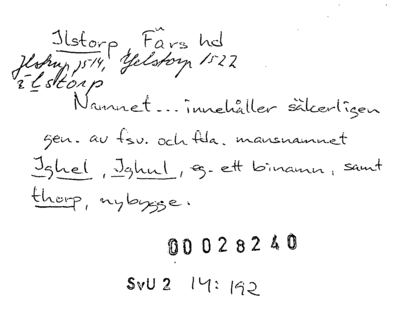 Ilstorp Färs hd
Ilstrup 1514, Yelstorp 1522
ilstorp
Namnet... innehåller säkerligen
gen. av fsv. och fda. mansnamnet
Ighel, Ighul, eg. ett binamn, samt
thorp, nybygge.
00028240
SvU 2 14:192